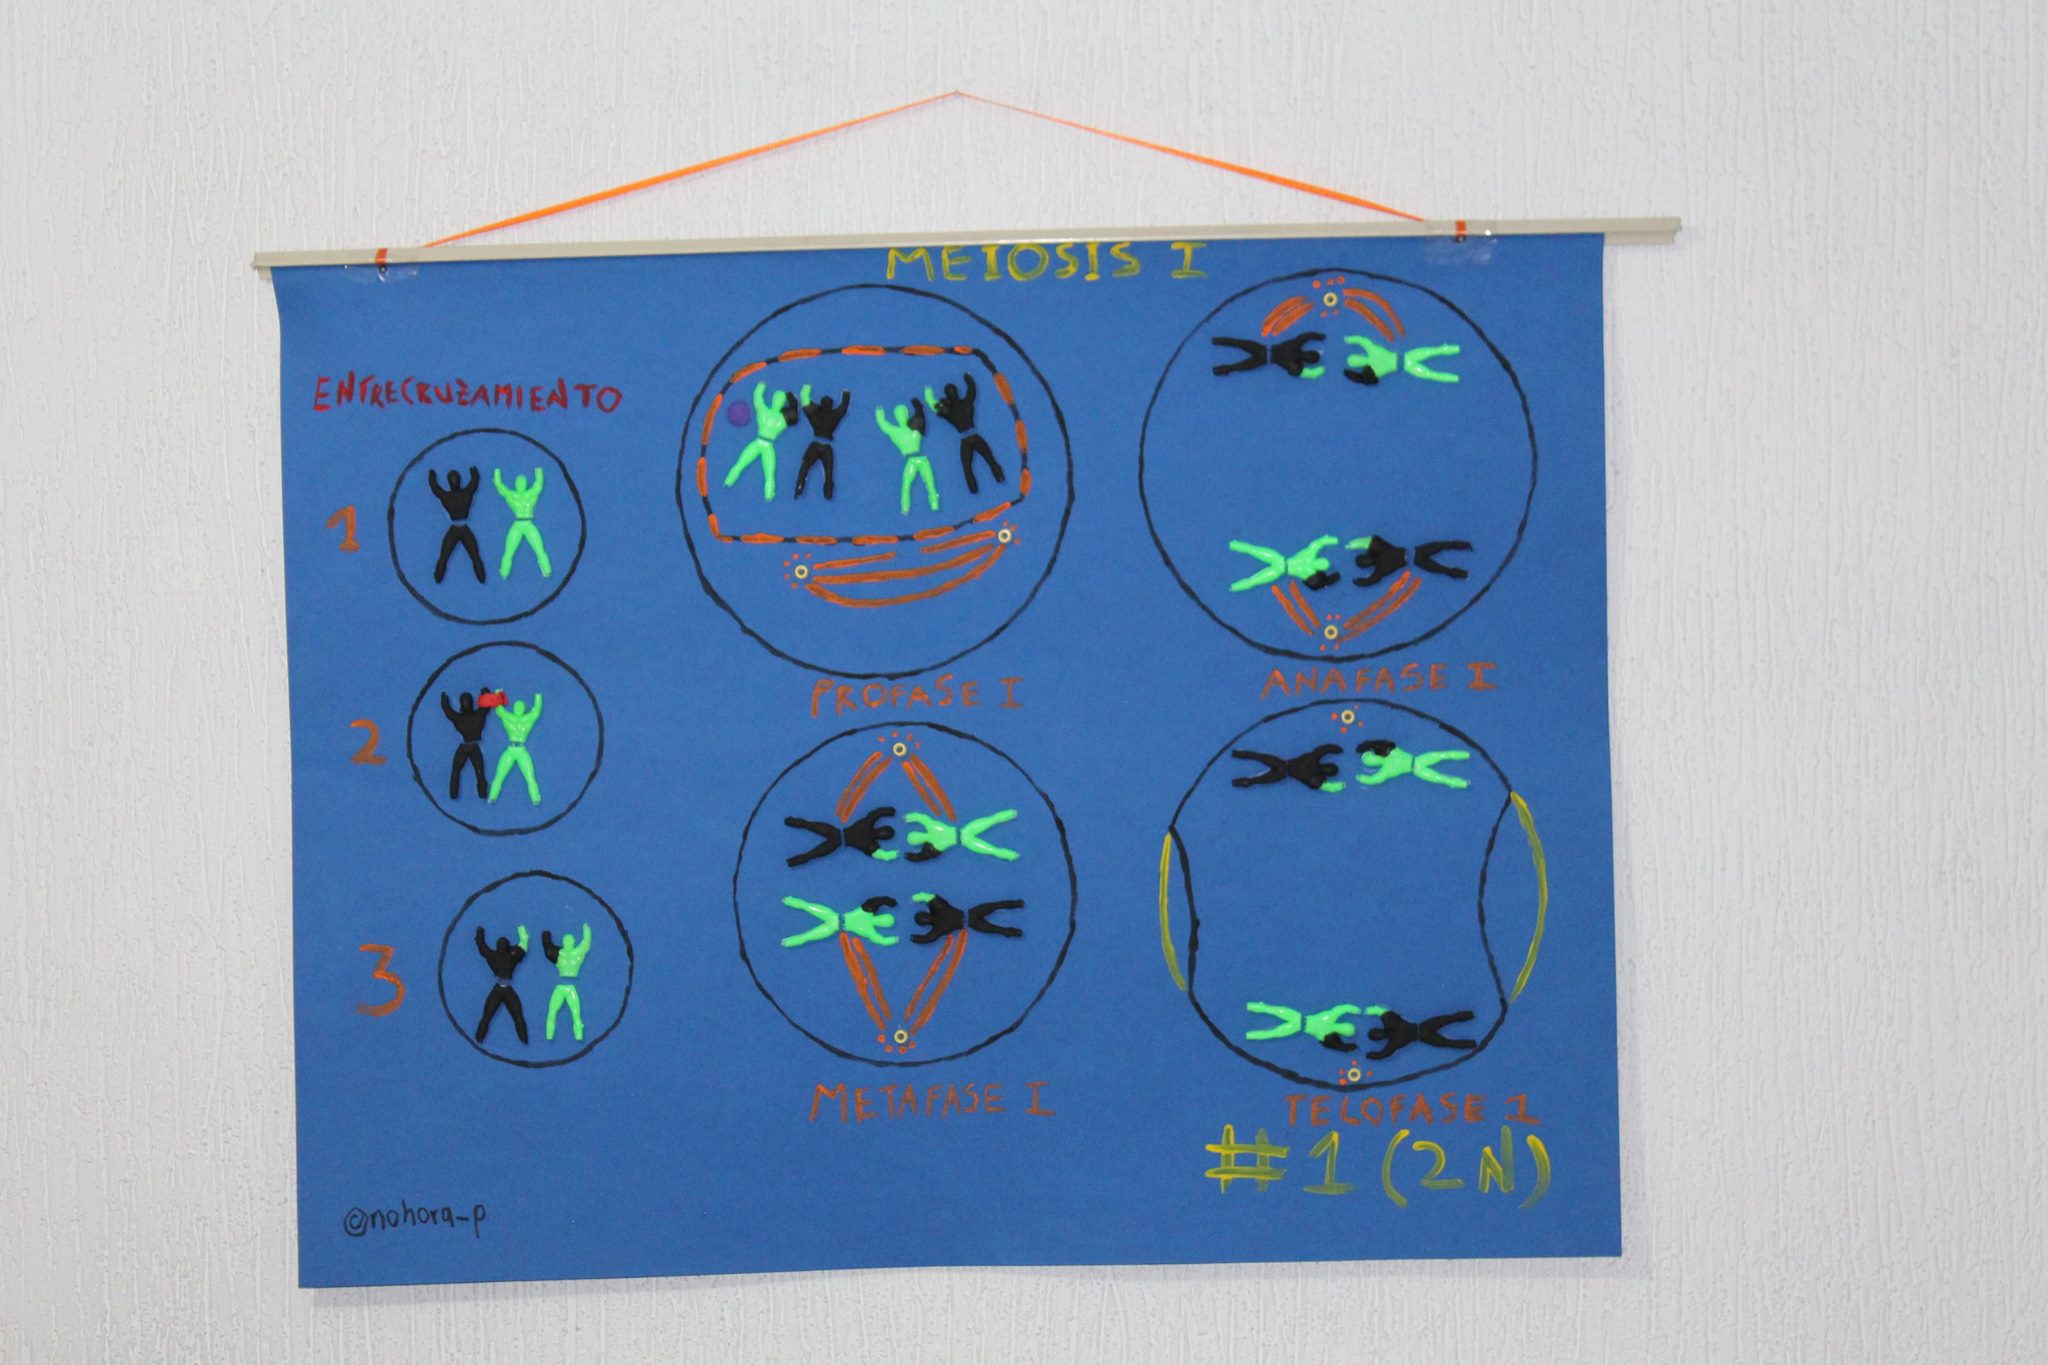 MEIOSIS I
ENTRECRUZAMIENTO
1
2
3
PROFASE I
ANAFASE I
METAFASE I
TELOFASE I
#1 (2N)
@nohora_p